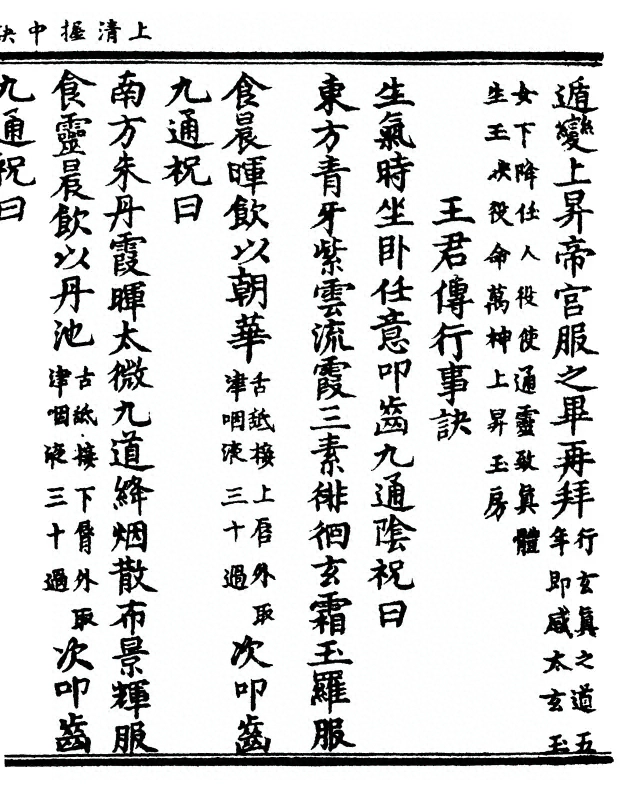 上清握中訣
遁變上昇帝宮服之畢再拜行玄真之道五年即感太玄玉
女下降任人役使通靈致真體生玉決役命萬神上昇玉房
王君傳行事訣
生氣時坐卧任意叩齒九通陰祝曰
東方青牙紫雲流霞三素徘徊玄霜玉羅服
食晨暉飲以朝華舌舐接上唇外取津咽液三十過次叩齒
九通祝曰
南方朱丹霞暉太微九道絳烟散布景輝服
食靈晨飲以丹池舌舐接下脣外取津咽液三十過次叩齒
九通祝曰